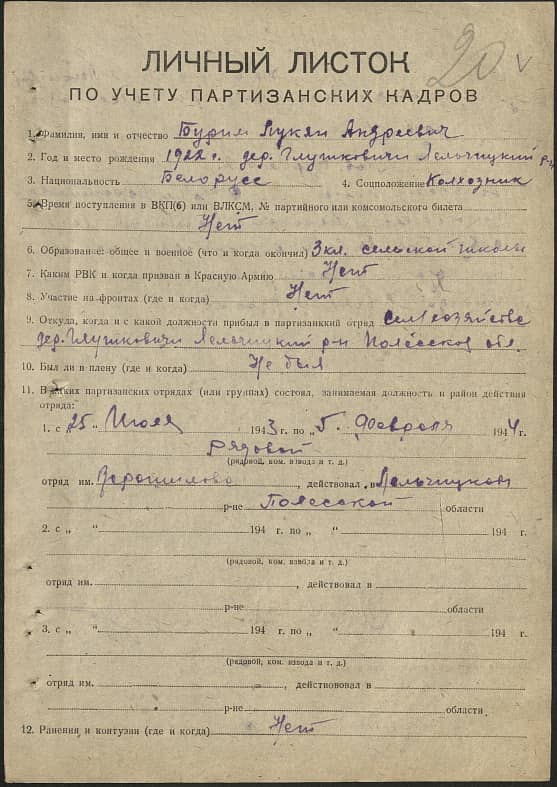 20 V
ЛИЧНЫЙ ЛИСТОК
ПО УЧЕТУ ПАРТИЗАНСКИХ КАДРОВ
1. Фамилия, имя и отчество Бурим Лукян Андреевич
2. Год и место рождения 1922 г. дер. Глушковичи Лельчицкий р-н
3. Национальность Белорусс 4. Соцположение Колхозник
5. Время поступления в ВКП(б) или ВЛКСМ, № партийного или комсомольского билета
Нет
6. Образование: общее и военное (что и когда окончил) 3 кл. сельской школы
7. Каким РВК и когда призван в Красную Армию Нет
8. Участие на фронтах (где и когда) Нет
9. Откуда, когда и с какой должности прибыл в партизанский отряд сел. хозяйства
дер. Глушковичи Лельчицкий р-н Полесской обл.
10. Был ли в плену (где и когда) Не был
11. В каких партизанских отрядах (или группах) состоял, занимаемая должность и район действия
отряда:
1. с „25“ Июля 1943 г. по „5“ Февраля 1944 г.
Рядовой
(рядовой, ком. взвода и т. д.)
отряд им. Ворошилова, действовал в Лельчицком
р-не Полесской области
2. с „ “ 194 г. по „ “ 194 г.
(рядовой, ком. взвода и т. д.)
отряд им. , действовал в
р-не области
3. с „ “ 194 г. по „ “ 194 г.
(рядовой, ком. взвода и т. д.)
отряд им. , действововал в
р-не области
12. Ранения и контузии (где и когда) Нет